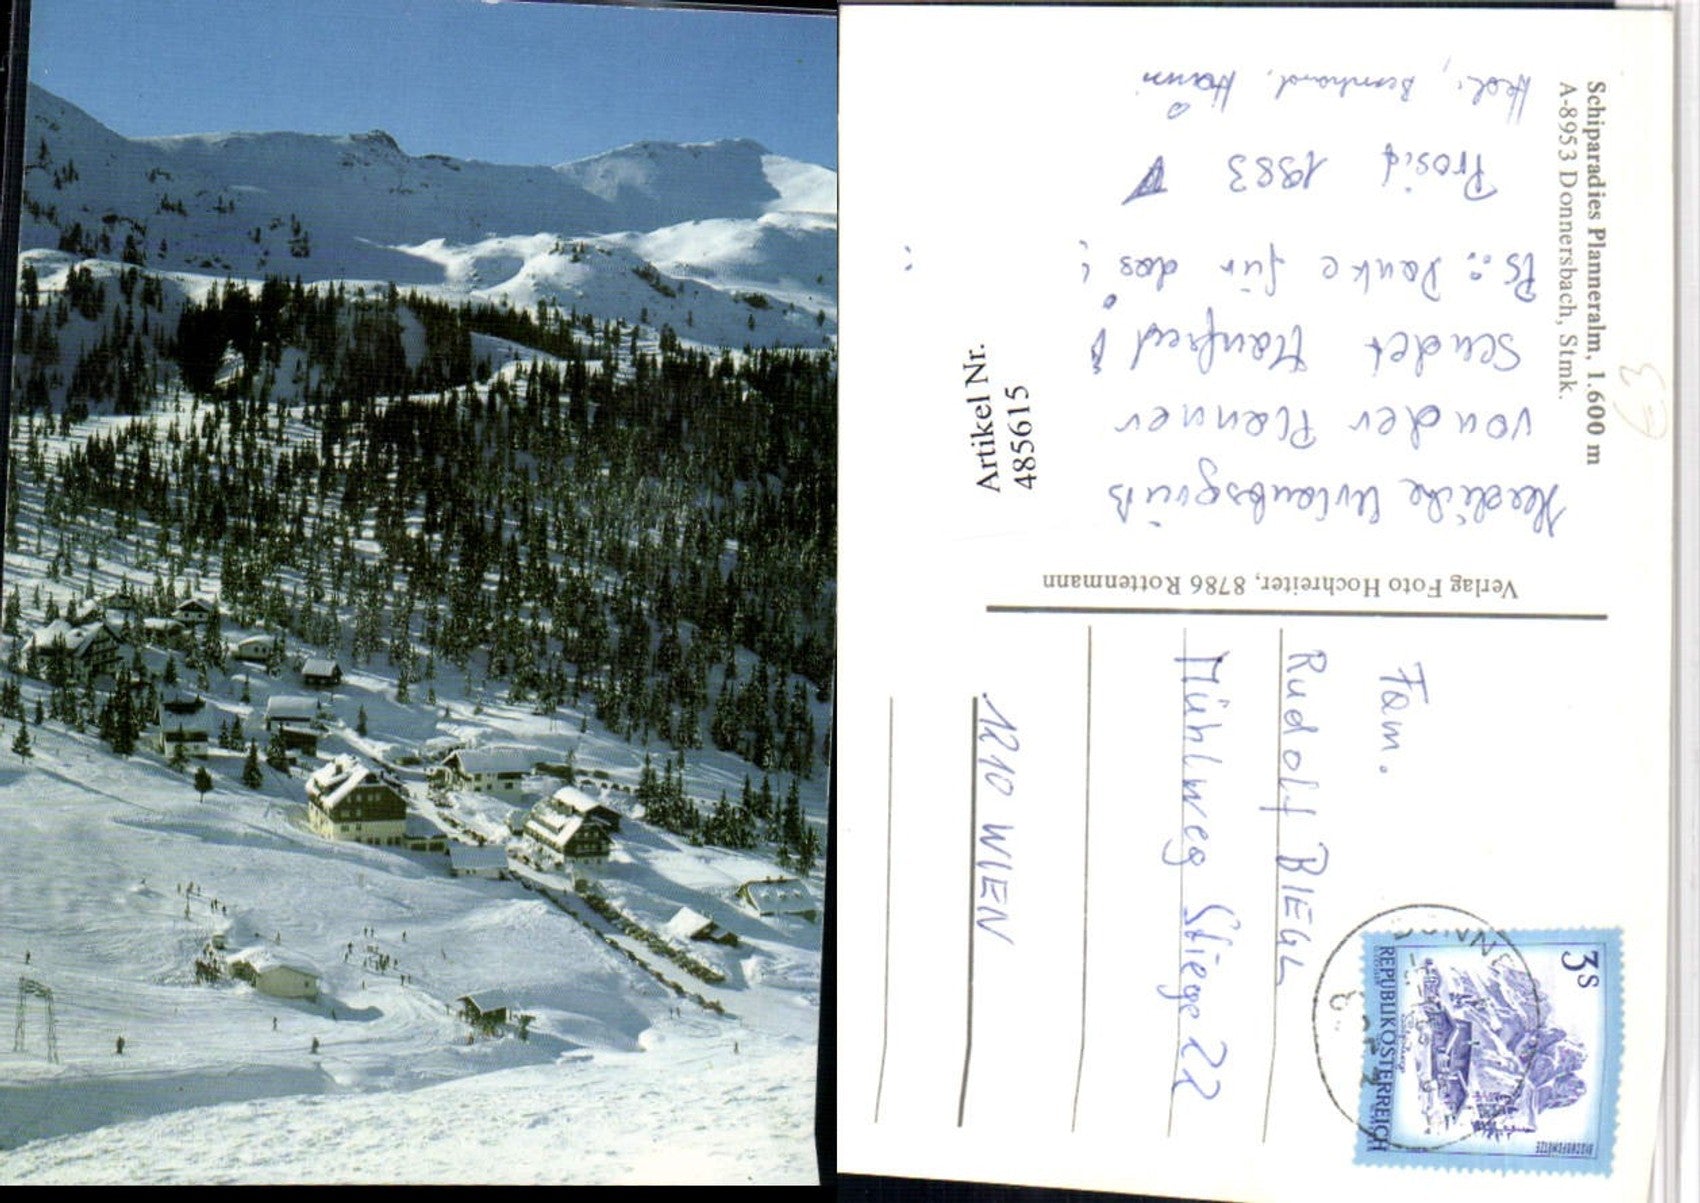 Schiparadies Planneralm, 1.600 m
A-8953 Donnersbach, Stmk.
Herzliche Urlaubsgrüß
von der Planner
sendet Manfred!
PS.: Danke für das!
Prosit 1983
Hedi, Bernhard, Hanni
Verlag Foto Hochreiter, 8786 Rottenmann
Artikel Nr.
485615
Fam.
Rudolf BIEGL
Mühlweg Stiege 22
1210 WIEN
3S
REPUBLIK ÖSTERREICH
BISCHOFSMÜTZE